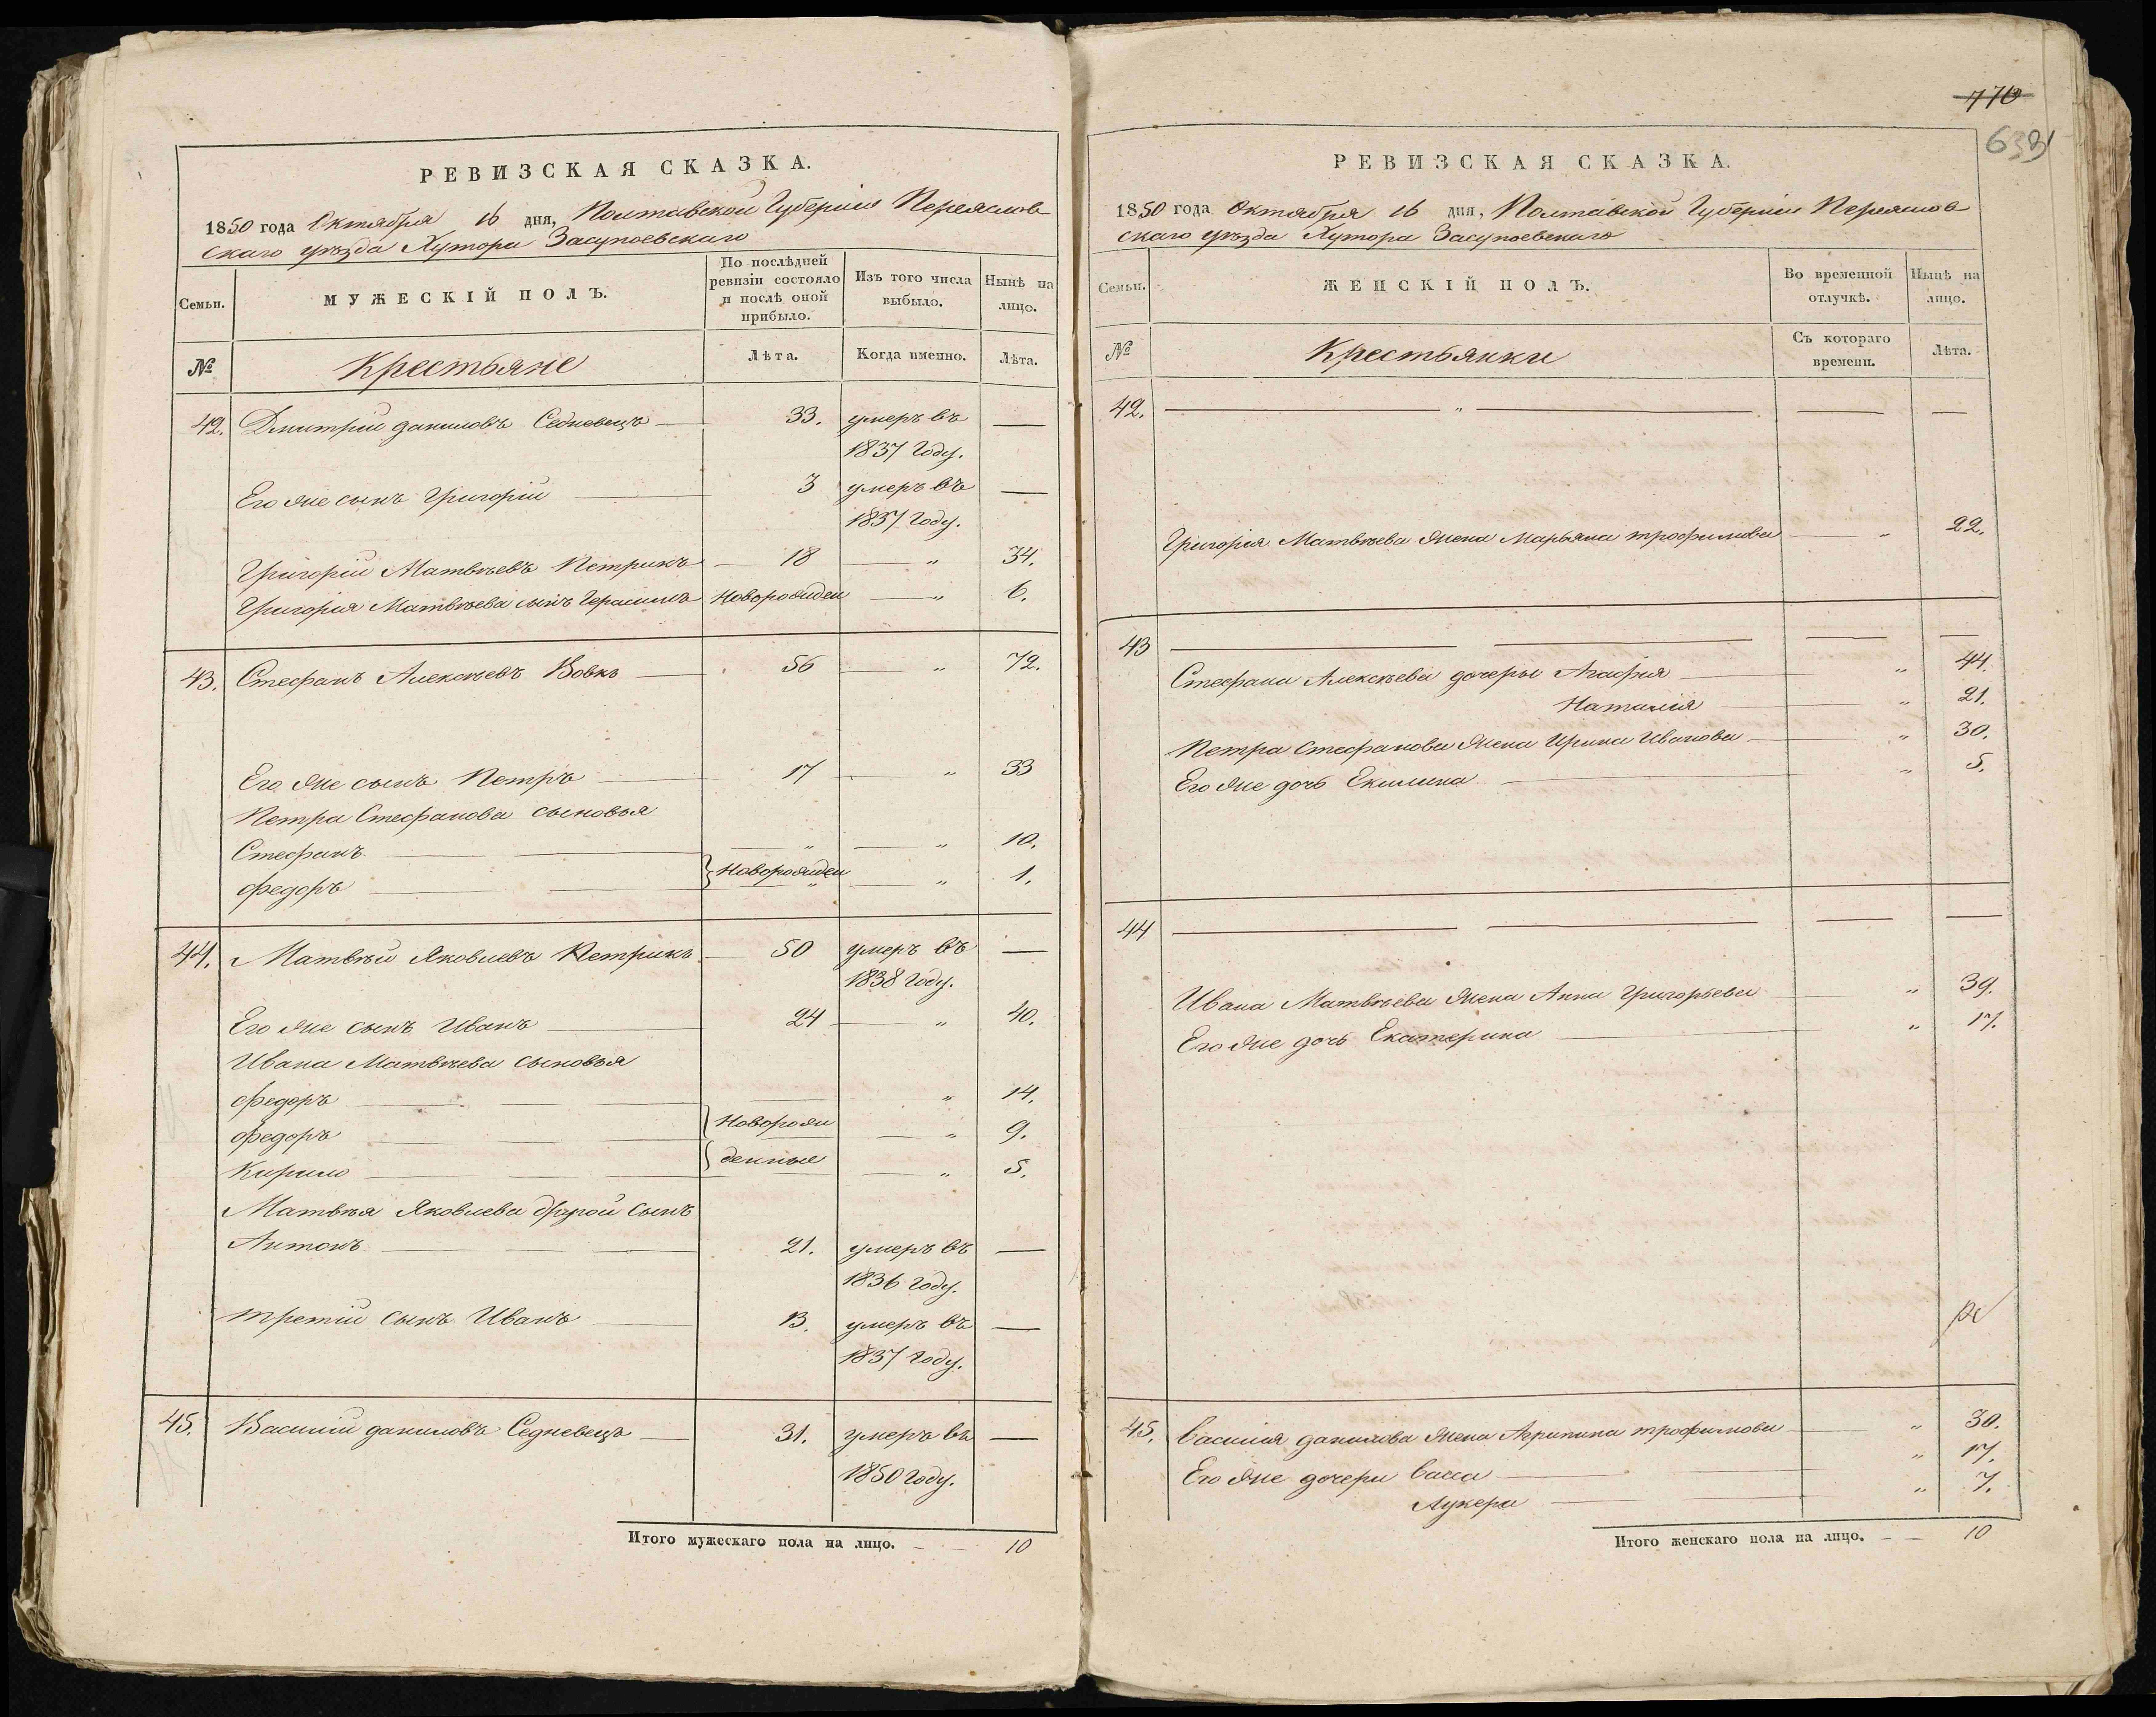 РЕВИЗСКАЯ СКАЗКА.
1850 года Октября 16 дня, Полтавской Губерніи Переяслов-
скаго уѣзда Хутора Засупоевскаго
Семьи.
МУЖЕСКІЙ ПОЛЪ.
По послѣдней ревизіи состояло и послѣ оной прибыло.
Изъ того числа выбыло.
Нынѣ на лицо.
№
Крестьяне
Лѣта.
Когда именно.
Лѣта.
42. Дмитрій даниловъ Седневецъ — 33. умеръ въ —
1837 году.
Его же сынъ Григорій — 3 умеръ въ —
1837 году.
Григорій Матвѣевъ Петрикъ — 18 — „ 34.
Григорія Матвѣева сынъ Герасимъ Новорожден — „ 6.
43. Стефанъ Алексѣевъ Вовкъ — 56 — „ 72.
Его же сынъ Петръ — 17 — „ 33
Петра Стефанова сыновья
Стефанъ — — „ — „ 10.
Новорожден
Федоръ — — „ — „ 1.
44. Матвѣй Яковлевъ Петрикъ — 50 умеръ въ —
1838 году.
Его же сынъ Иванъ — 24 — „ 40.
Ивана Матвѣева сыновья
Федоръ — — „ 14.
Новорож
Федоръ — — — „ 9.
денные
Кирило — — — „ 5.
Матвѣя Яковлева другой сынъ
Антонъ — — 21. умеръ въ —
1836 году.
третій сынъ Иванъ — 13. умеръ въ —
1837 году.
45. Василій даниловъ Седневецъ — 31. умеръ въ —
1850 году.
Итого мужескаго пола на лицо. — — 10
770
РЕВИЗСКАЯ СКАЗКА.
1850 года Октября 16 дня, Полтавской Губерніи Переяслов
скаго уѣзда Хутора Засупоевскаго
Семьи.
ЖЕНСКІЙ ПОЛЪ.
Во временной отлучкѣ.
Нынѣ на лицо.
№
Крестьянки
Съ котораго времени.
Лѣта.
42. — „ — — —
Григорія Матвѣева жена Марьяна трофимова — „ 22.
43 — — — —
Стефана Алексѣева дочери Агафія — „ 44.
Наталія — „ 21.
Петра Стефанова жена Ирина Иванова — „ 30.
Его же дочь Екилина — „ 5.
44 — — — —
Ивана Матвѣева жена Анна Григорьева — „ 39.
Его же дочь Екатерина — „ 17.
45. Василія данилова жена Агрипина трофимова — „ 30.
Его же дочери Васса — „ 17.
Лукера — — „ 7.
Итого женскаго пола на лицо. — — 10